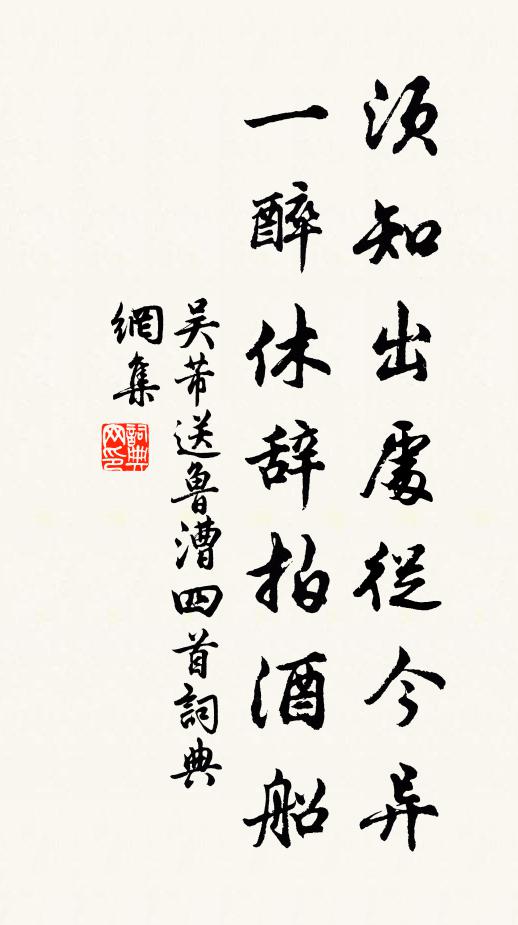 须知出處從今异
一醉休辞拍酒船
吴芾送魯漕四首詞典
網集
詞典網印